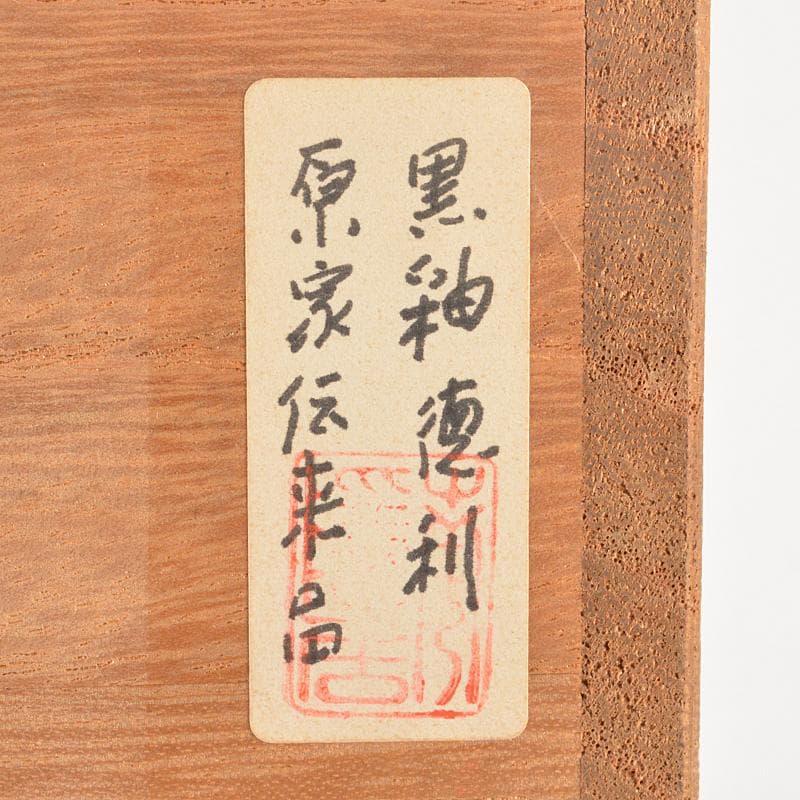 黒釉徳利
原家伝来品